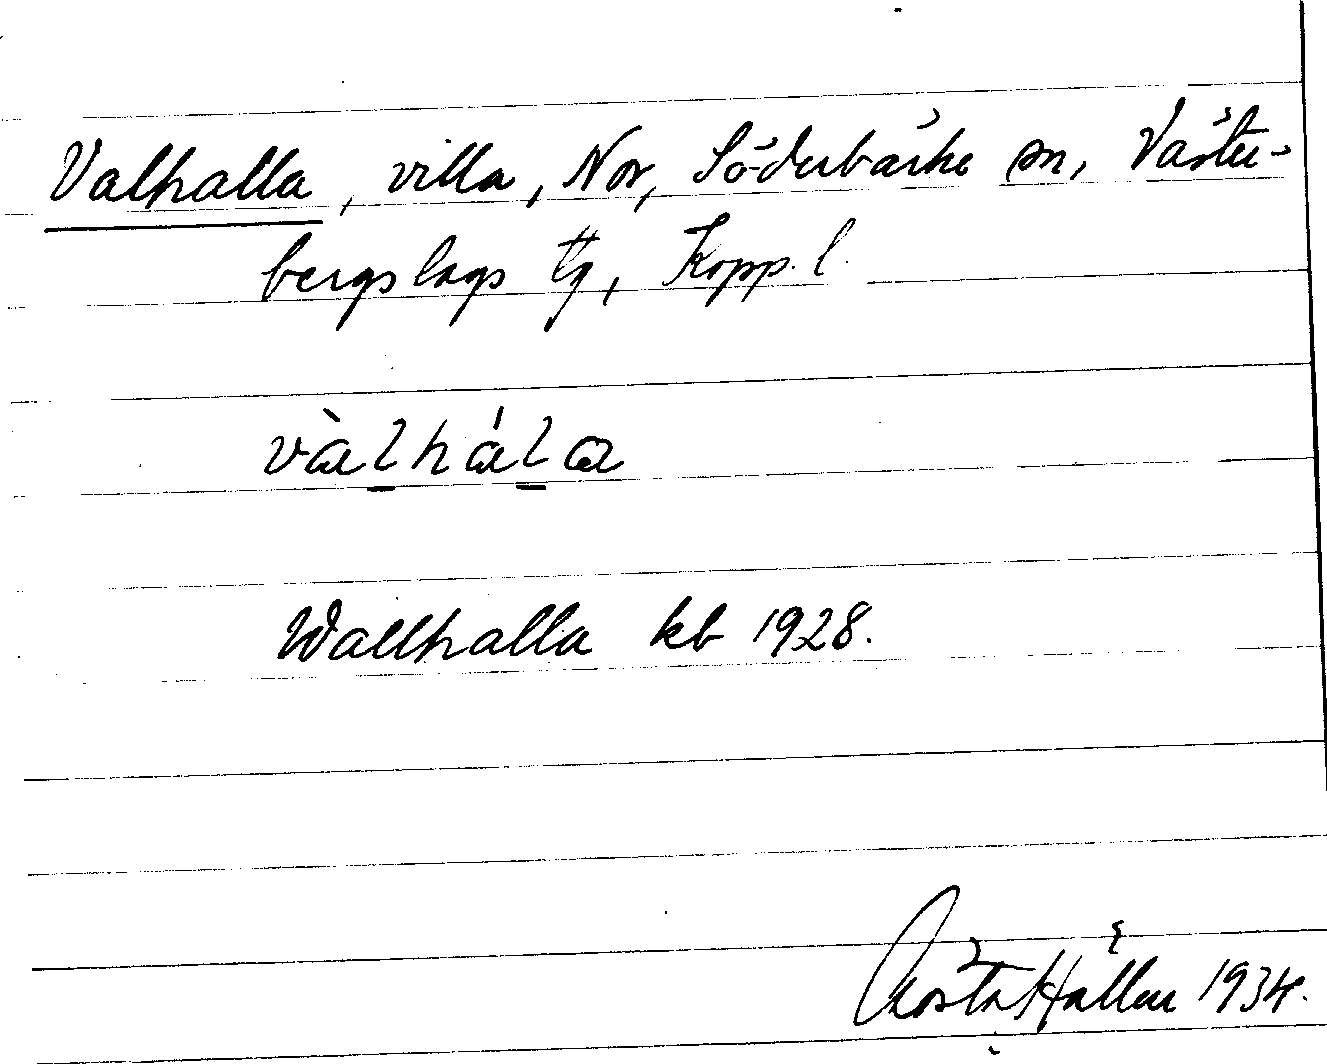 Valhalla, villa, Nor, Söderbärke sn, Väster-
bergslags tg, Kopp. l.
vàl̲hál̲a
Wallhalla kb 1928.
Gösta Hållen 1934.